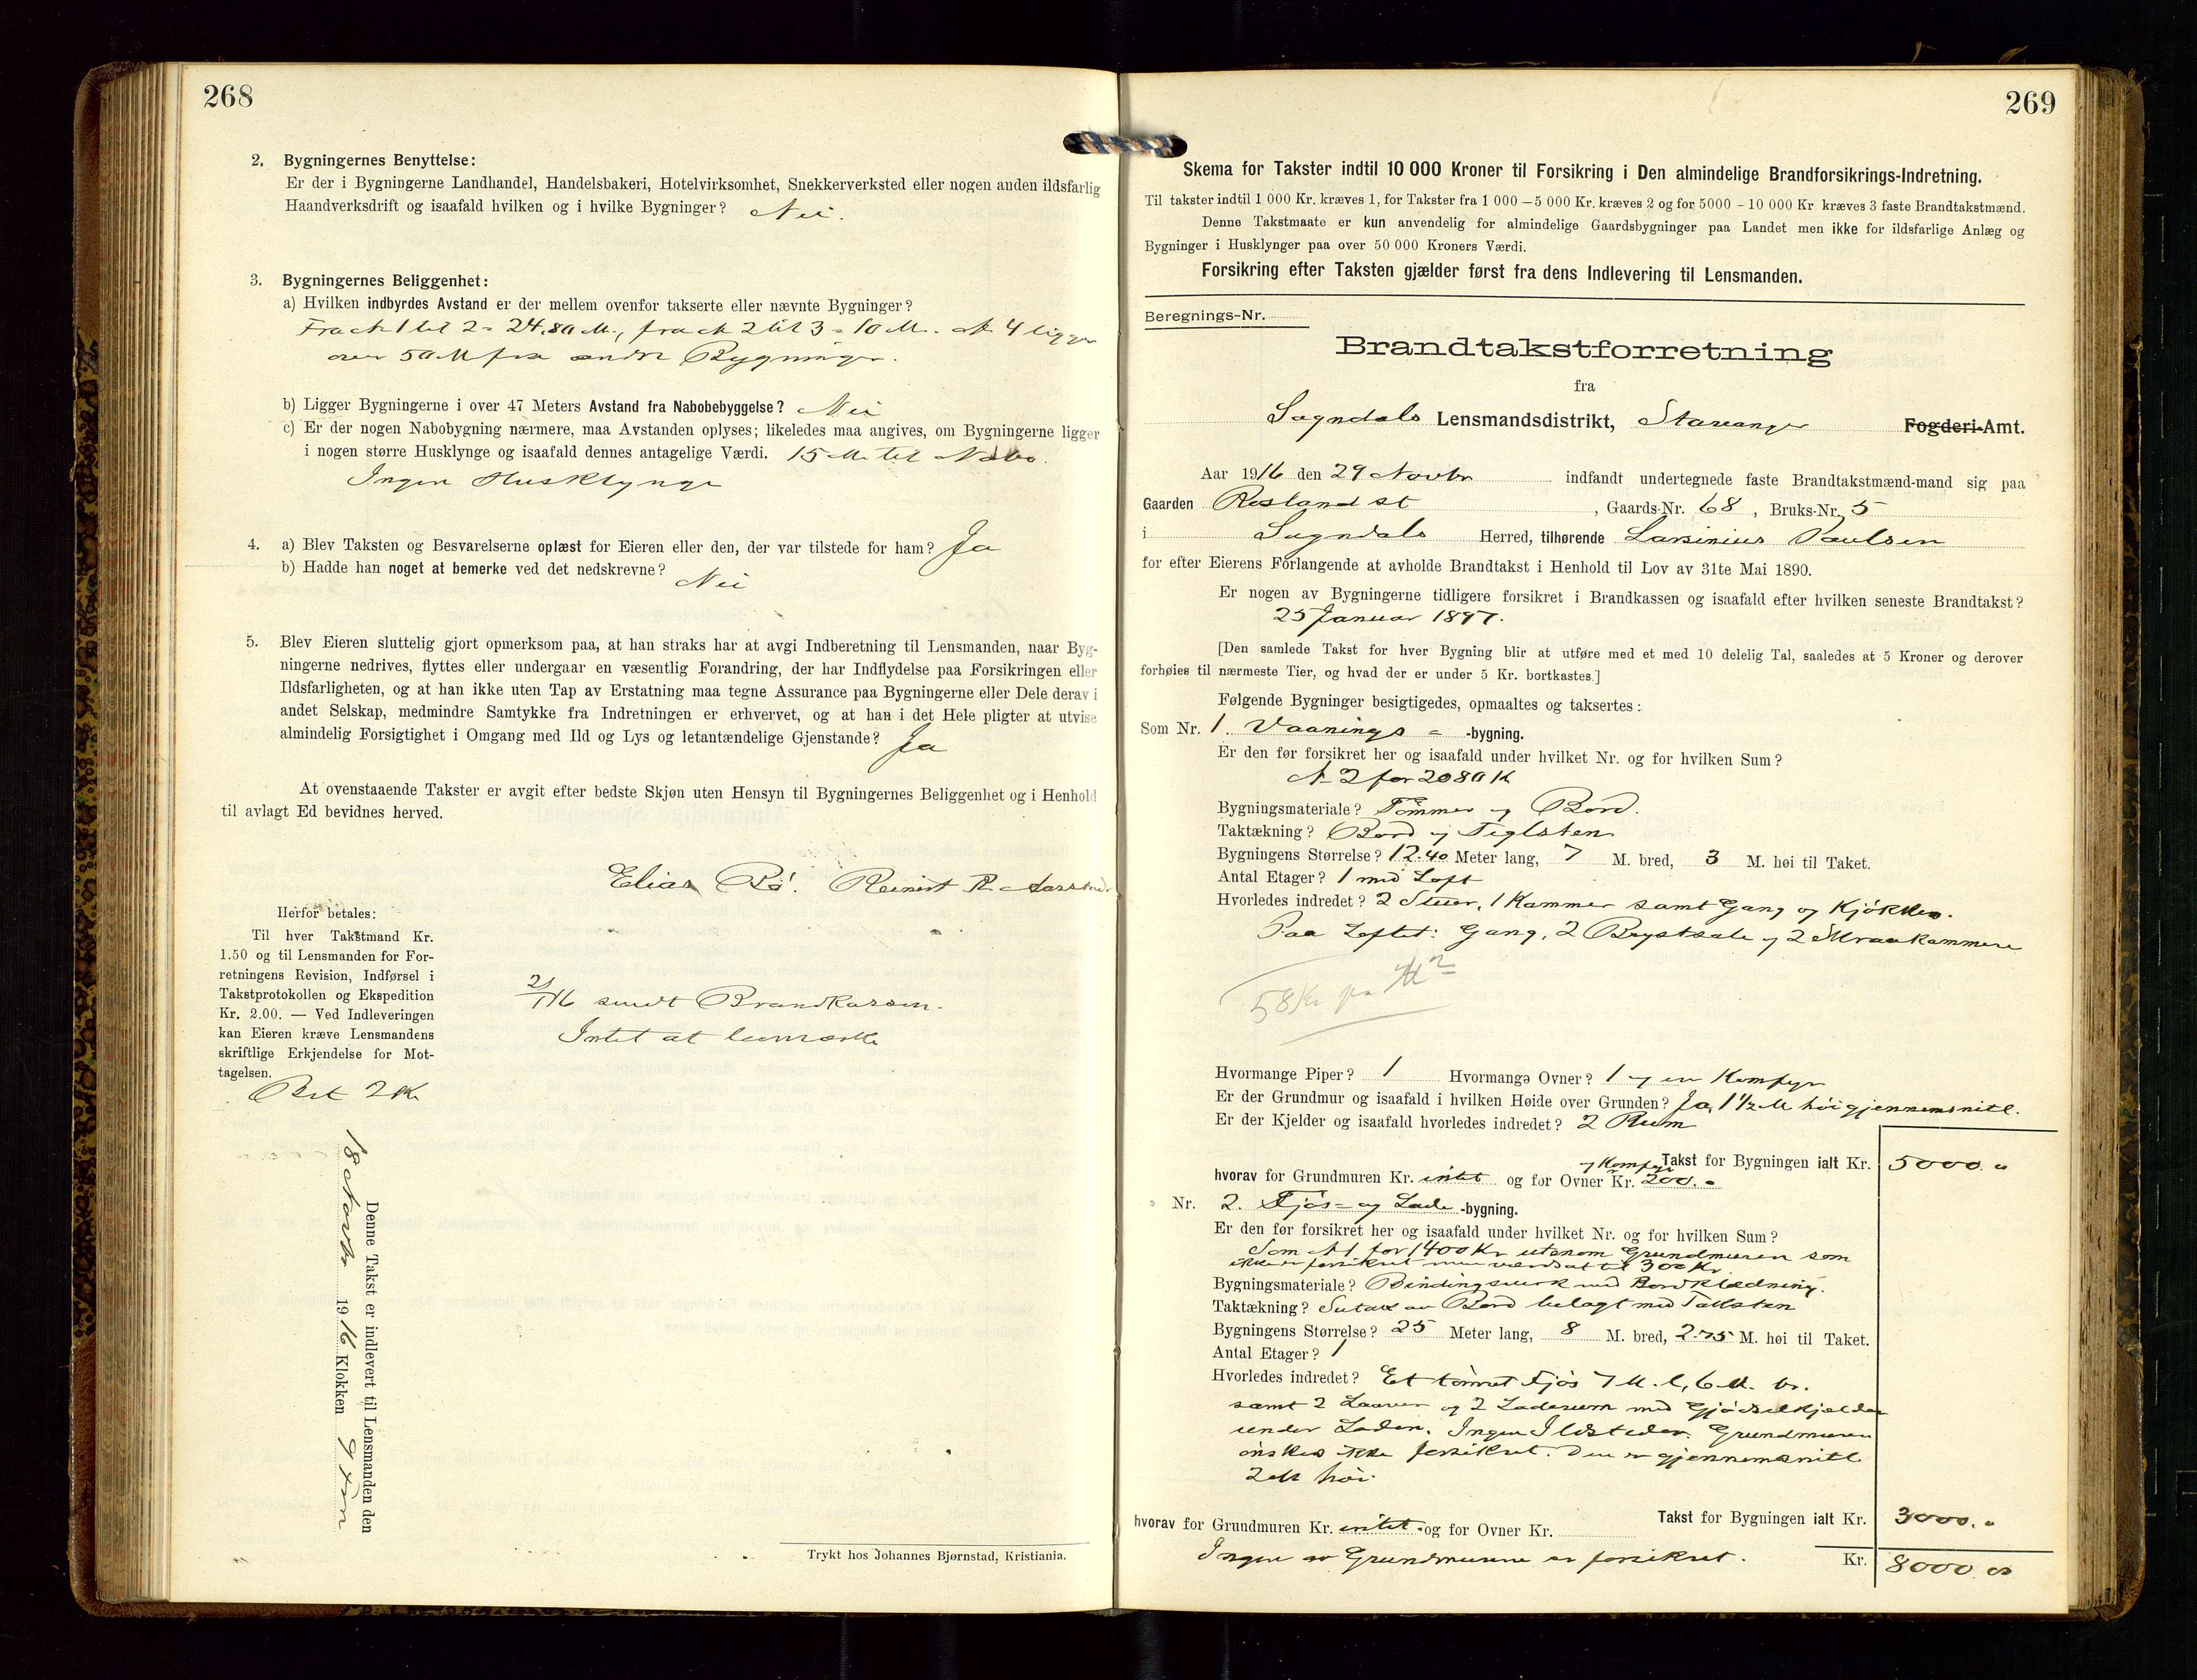 268
2. Bygningernes Benyttelse:
Er der i Bygningerne Landhandel, Handelsbakeri, Hotelvirksomhet, Snekkerverksted eller nogen anden ildsfarlig
Haandverksdrift og isaafald hvilken og i hvilke Bygninger? Nei.
3. Bygningernes Beliggenhet:
a) Hvilken indbyrdes Avstand er der mellem ovenfor takserte eller nævnte Bygninger?
Fra № 1 til 2 = 24.80 M., fra № 2 til 3 = 10 M. № 4 ligger
over 50 M fra andre Bygninger.
b) Ligger Bygningerne i over 47 Meters Avstand fra Nabobebyggelse? Nei
c) Er der nogen Nabobygning nærmere, maa Avstanden oplyses; likeledes maa angives, om Bygningerne ligger
i nogen større Husklynge og isaafald dennes antagelige Værdi. 15 M til Nabo.
Ingen Husklynge
4. a) Blev Taksten og Besvarelserne oplæst for Eieren eller den, der var tilstede for ham? Ja
b) Hadde han noget at bemerke ved det nedskrevne? Nei
5. Blev Eieren sluttelig gjort opmerksom paa, at han straks har at avgi Indberetning til Lensmanden, naar Byg-
ningerne nedrives, flyttes eller undergaar en væsentlig Forandring, der har Indflydelse paa Forsikringen eller
Ildsfarligheten, og at han ikke uten Tap av Erstatning maa tegne Assurance paa Bygningerne eller Dele derav i
andet Selskap, medmindre Samtykke fra Indretningen er erhvervet, og at han i det Hele pligter at utvise
almindelig Forsigtighet i Omgang med Ild og Lys og letantændelige Gjenstande? Ja
At ovenstaaende Takster er avgit efter bedste Skjøn uten Hensyn til Bygningernes Beliggenhet og i Henhold
til avlagt Ed bevidnes herved.
Elias Rø. Reinert R.
Herfor betales:
Til hver Takstmand Kr.
1.50 og til Lensmanden for For-
retningens Revision, Indførsel i
Takstprotokollen og Ekspedition
Kr. 2.00. — Ved Indleveringen
kan Eieren kræve Lensmandens
skriftlige Erkjendelse for Mot-
tagelsen.
Bet 2 Kr
sendt Brandkassen.
Intet at bemærke
Denne Takst er indlevert til Lensmanden den
18 Novbr 1916 Klokken 9 Fm
Trykt hos Johannes Bjørnstad, Kristiania.
269
Skema for Takster indtil 10 000 Kroner til Forsikring i Den almindelige Brandforsikrings-Indretning.
Til takster indtil 1 000 Kr. kræves 1, for Takster fra 1 000 — 5 000 Kr. kræves 2 og for 5000 - 10 000 Kr kræves 3 faste Brandtakstmænd.
Denne Takstmaate er kun anvendelig for almindelige Gaardsbygninger paa Landet men ikke for ildsfarlige Anlæg og
Bygninger i Husklynger paa over 50 000 Kroners Værdi.
Forsikring efter Taksten gjælder først fra dens Indlevering til Lensmanden.
Beregnings-Nr.
Brandtakstforretning
fra
Sogndals Lensmandsdistrikt, Stavanger Fogderi-Amt.
Aar 1916 den 29 Novbr indfandt undertegnede faste Brandtakstmænd-mand sig paa
Gaarden Rosland st, Gaards-Nr. 68, Bruks-Nr. 5
i Sogndals Herred, tilhørende Larsinius Paulsen
for efter Eierens Forlangende at avholde Brandtakst i Henhold til Lov av 31te Mai 1890.
Er nogen av Bygningerne tidligere forsikret i Brandkassen og isaafald efter hvilken seneste Brandtakst?
25 Januar 1897.
[Den samlede Takst for hver Bygning blir at utføre med et med 10 delelig Tal, saaledes at 5 Kroner og derover
forhøies til nærmeste Tier, og hvad der er under 5 Kr. bortkastes.]
Følgende Bygninger besigtigedes, opmaaltes og taksertes:
Som Nr. 1. Vaanings = -bygning.
Er den før forsikret her og isaafald under hvilket Nr. og for hvilken Sum?
№ 2 for 2080 K
Bygningsmateriale? Tømmer og Bord.
Taktækning? Bord og Teglsten
Bygningens Størrelse? 12.40 Meter lang, 7 M. bred, 3 M. høi til Taket.
Antal Etager? 1 med Loft
Hvorledes indredet? 2 Stuer, 1 Kammer samt Gang og Kjøkken.
Paa Loftet: Gang, 2 Brystsale og 2 Skraakammere
58 Kr pr M²
Hvormange Piper? 1 Hvormange Ovner? 1 og en Komfyr
Er der Grundmur og isaafald i hvilken Høide over Grunden? Ja, 1½ M høi gjennemsnitl.
Er der Kjelder og isaafald hvorledes indredet? 2 Rum
Takst for Bygningen ialt Kr. 5000. "
og Komfyr
hvorav for Grundmuren Kr. intet og for Ovner Kr. 200. "
Nr. 2. Fjøs= og Lade -bygning.
Er den før forsikret her og isaafald under hvilket Nr. og for hvilken Sum?
Som № 1 for 1400 Kr utenom Grundmuren som
ikke er forsikret men værdsat til 300 Kr.
Bygningsmateriale? Bindingsverk med Bordklædning.
Taktækning? Sutak av Bord belagt med Taksten
Bygningens Størrelse? 25 Meter lang, 8 M. bred, 2.75 M. høi til Taket.
Antal Etager? 1
Hvorledes indredet? Et tømret Fjøs 7 M. l, 6 M. br.
samt 2 Laaver og 2 Laderum med Gjødselkjelder
under Laden. Ingen Ildsteder. Grundmuren
ønskes ikke forsikret. Den er gjennemsnitl
2 M høi.
Takst for Bygningen ialt Kr. 3000. "
hvorav for Grundmuren Kr. intet og for Ovner Kr.
Ingen av Grundmurene er forsikret.
Kr. 8000. 00